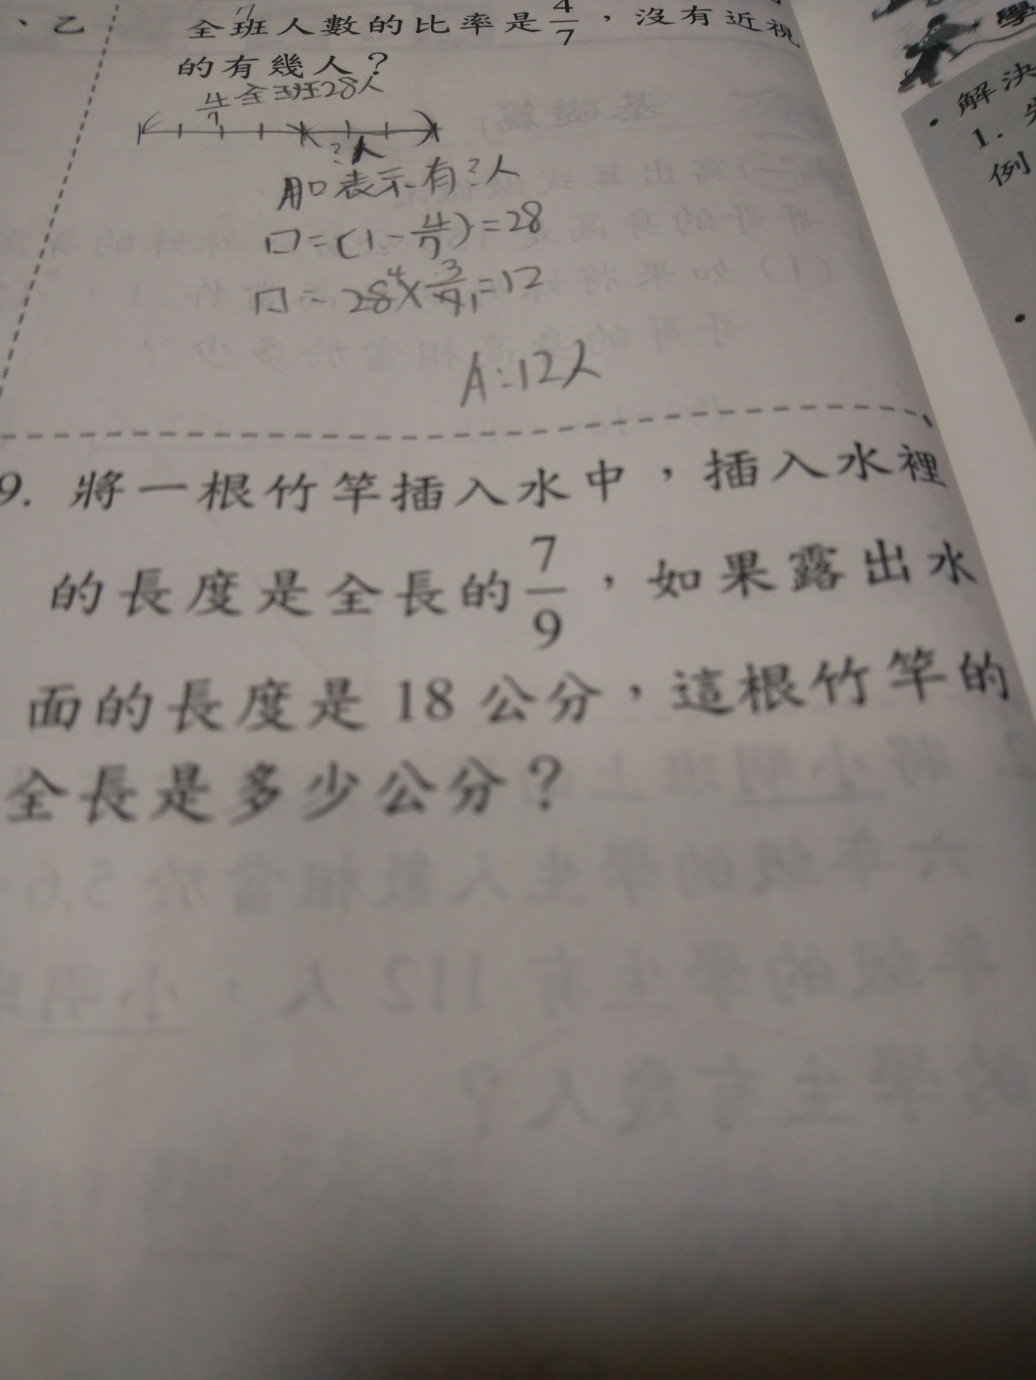 、乙
全班人數的比率是4/7，沒有近視
的有幾人？
4/7 全班28人
?人
用□表示有?人
□=(1-4/7)=28
□=28⁴×3/7₁=12
A:12人
9. 將一根竹竿插入水中，插入水裡
的長度是全長的7/9，如果露出水
面的長度是18公分，這根竹竿的
全長是多少公分？
學
•解決
1.
例